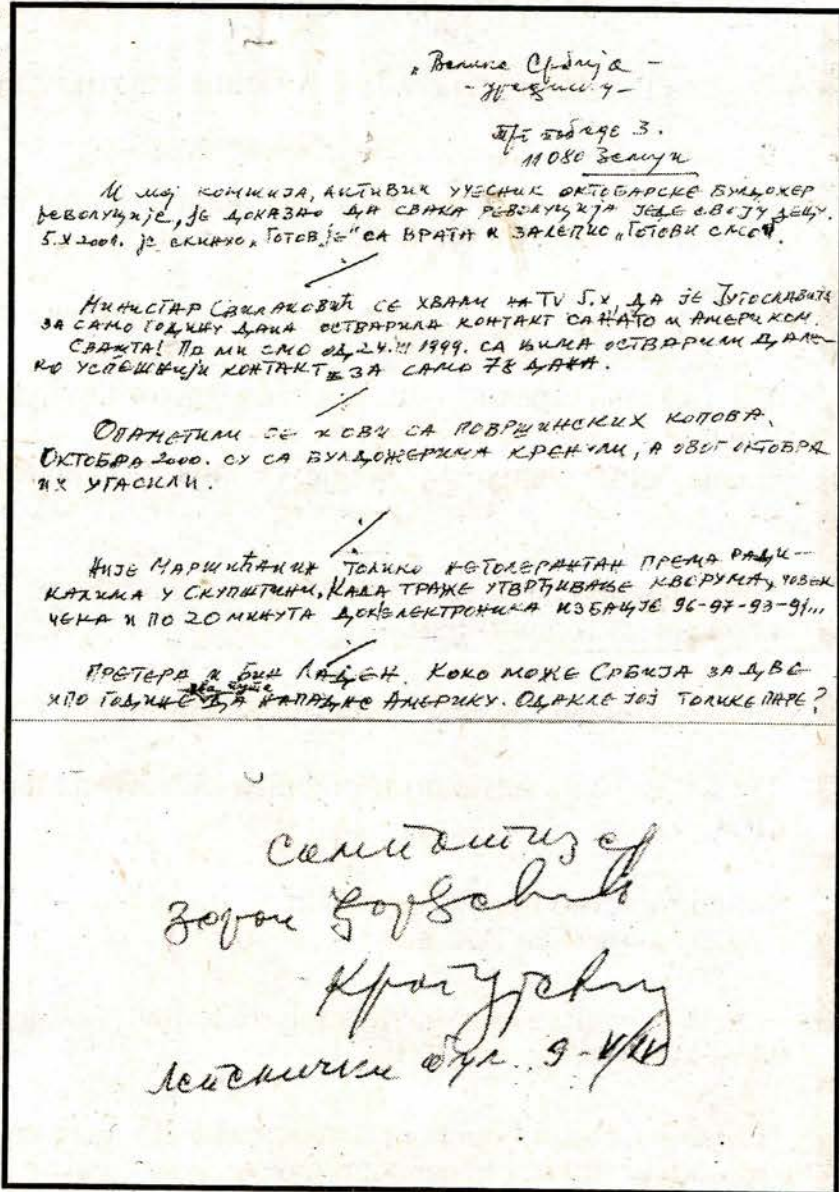 „Велика Србија –
– уреднику –
Трг победе 3.
11080 Земун
И мој комшија, активни учесник октобарске булдожер
револуције, је доказао да свака револуција једе своју децу.
5.X 2001. је скинуо „Готов је“ са врата и залепио „Готови смо“.
Министар Свилановић се хвали на TV 5.X, да је Југославија
за само годину дана остварила контакт са НАТО и Америком.
Свашта! Па ми смо од 24.III 1999. са њима остварили дале–
ко успешнији контакт за само 78 дана.
Опаметили се и ови са површинских копова.
Октобра 2000. су са булдожерима кренули, а овог октобра
их угасили.
Није Маршићанин толико нетолерантан према ради–
калима у Скупштини. Када траже утврђивање кворума, човек
чека и по 20 минута док електроника избације 96-97-93-91...
Претера и Бин Ладен. Коко може Србија за две
ипо године два пута да нападне Америку. Одакле јој толике паре?
Симпатизер
Зоран Ђорђевић
Крагујевац
Лепенички бул. 9-